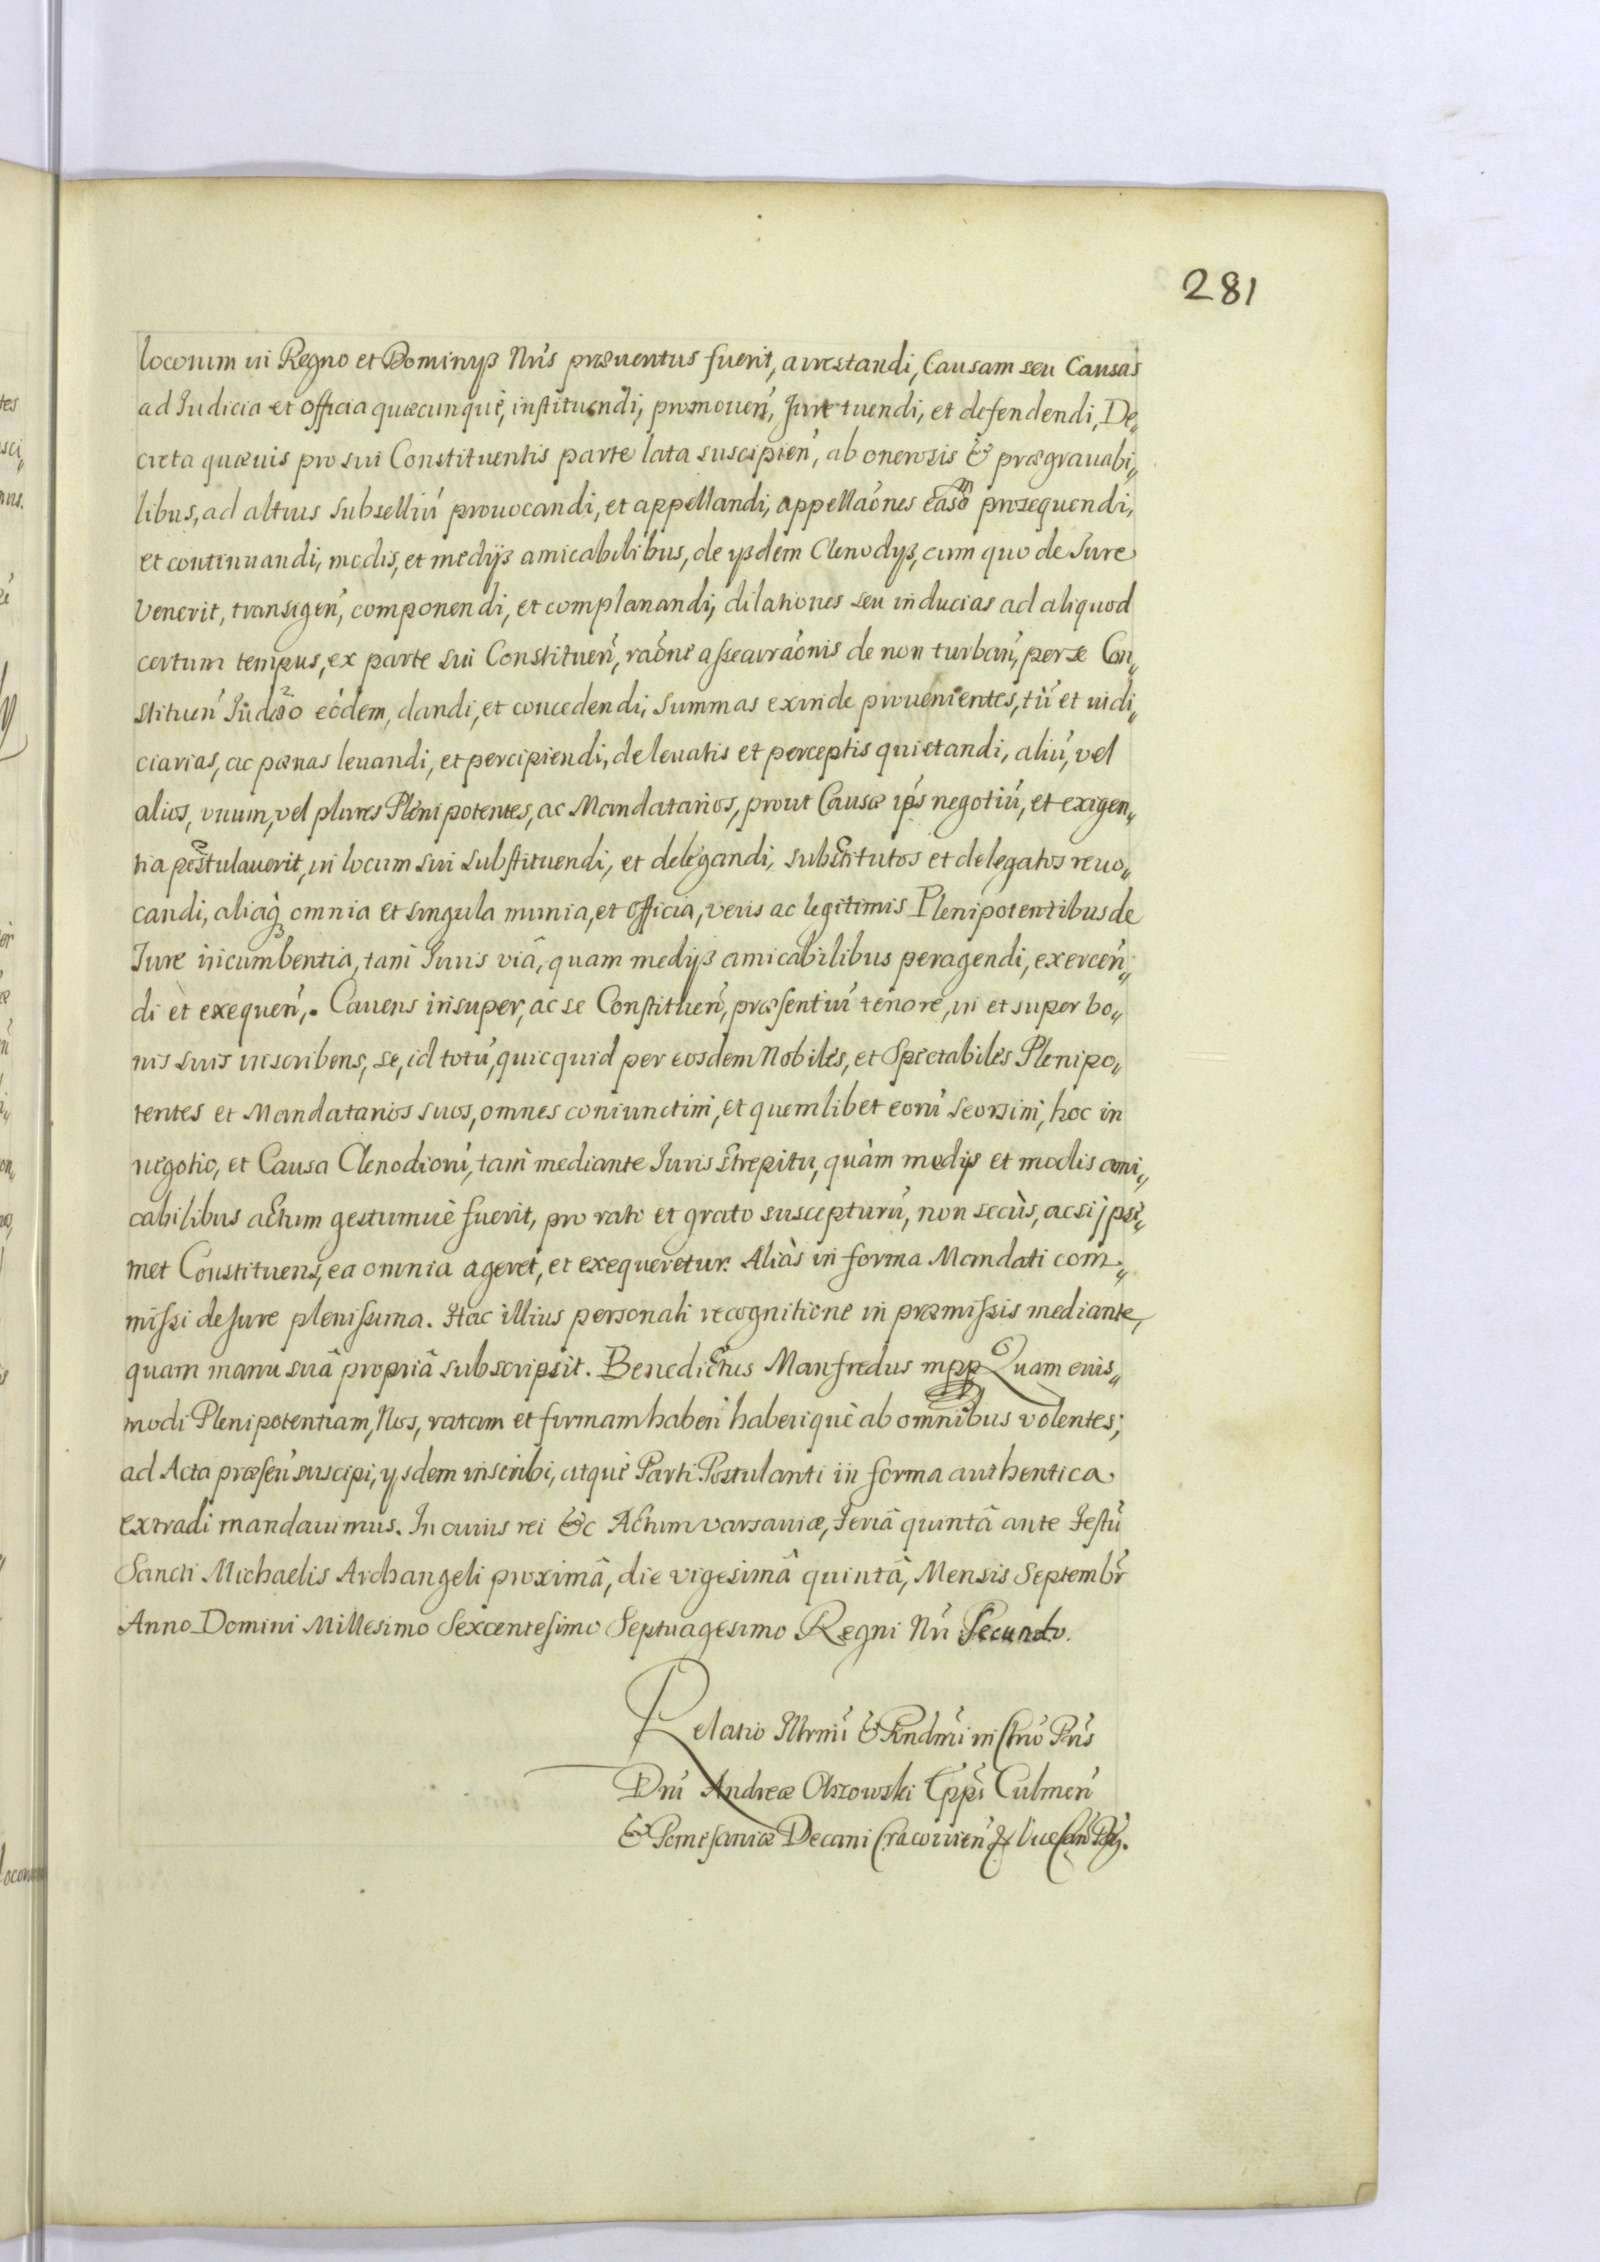 281
locorum in Regno et Dominÿs Nris præuentus fuerit, arrestandi, Causam seu Causas
ad Iudicia et officia quæcunquè, instituendi, promouen̄, Iure tuendi, et defendendi, De„
creta quæuis pro sui Constituentis parte lata suscipien̄, ab onerosis & prægrauabi„
libus, ad altius subselliū prouocandi, et appellandi, appellaōnes easdm prosequendi,
et continuandi, modis, et medijs amicabilibus, de ysdem Clenodÿs, cum quo de Iure
Venerit, transigen̄, componendi, et complanandi, dilationes seu inducias ad aliquod
certum tempus, ex parte sui Constituen̄, raōne assecuraōnis de non turban̄, per se Con„
stituen̄ eòdem, dandi, et concedendi, summas exinde prouenientes, tū et iudi„
ciarias, ac pœnas leuandi, et percipiendi, de leuatis et perceptis quietandi, aliū, vel
alios, vnum, vel plures Plenipotentes, ac Mandatarios, prout Causæ ips negotiū, et exigen„
tia postulauerit, in locum sui substituendi, et delegandi, substitutos et delegatos reuo„
candi, aliaq3 omnia et singula munia, et officia, veris ac legitimis Plenipotentibus de
Iure incumbentia, tam Iuris viâ, quam medÿs amicabilibus peragendi, exercen̄„
di et exequen̄. Cauens insuper, ac se Constituen̄, præsentiū tenore, in et super bo„
nis suis inscribens, se, id totū, quicquid per eosdem Nobiles, et Spectabiles Plenipo„
tentes et Mandatarios suos, omnes coniunctim, et quemlibet eorū seorsim, hoc in
negotio, et Causa Clenodiorū, tam mediante Iuris strepitu, quàm medÿs et modis ami„
cabilibus actum gestumuè fuerit, pro rato et grato suscepturū, non secùs, ac si jpse„
met Constituens, ea omnia ageret, et exequeretur. Aliàs in forma Mandati com„
missi de Iure plenissima. Hac illius personali recognitione in præmissis mediante,
quam manu suâ propriâ subscripsit. Benedictus Manfredus mpp Quam euis„
modi Plenipotentiam, Nos, ratam et firmam haberi haberiquè ab omnibus volentes;
ad Acta præsen̄ suscipi, ysdem inscribi, atquè Parti Postulanti in forma authentica
extradi mandauimus. In cuius rei &c Actum varsauiæ, Feriâ quintâ ante Festū
Sancti Michaelis Archangeli proximâ, die vigesimâ quintâ, Mensis Septembr̄
Anno Domini Millesimo Sexcentesimo Septuagesimo Regni Nri Secundo.
Relatio Illrmi & Rndmi in Chrō Pris
Dni Andreæ Olszowski Eppi Culmen̄
& Pomesaniæ Decani Cracouien̄